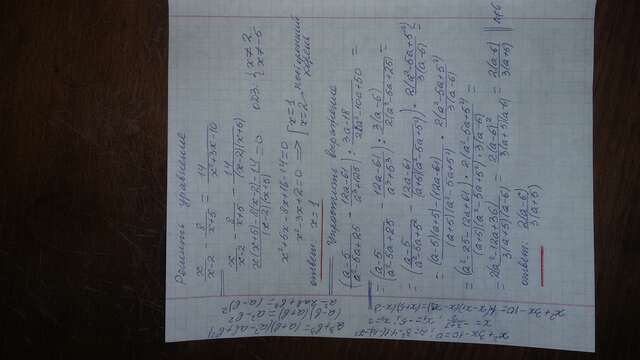 Решить уравнение
x/(x-2) - 8/(x+5) = 14/(x²+3x-10)
x/(x-2) - 8/(x+5) - 14/((x-2)(x+5))
(x(x+5)-8(x-2)-14)/((x-2)(x+5)) = 0 ОДЗ: {x≠2 x≠-5
x²+5x-8x+16-14=0
x²-3x+2=0 ⟹ [x=1 x=2 - посторонний корень
ответ: x=1
Упростить выражение
((a-5)/(a²-5a+25) - (12a-61)/(a³+125)) : (3a-18)/(2a²-10a+50) =
= ((a-5)/(a²-5a+25) - (12a-61)/(a³+5³)) : 3(a-6)/(2(a²-5a+25)) =
= ((a-5)/(a²-5a+5²) - (12a-61)/((a+5)(a²-5a+5²))) · 2(a²-5a+5²)/(3(a-6)) =
= ((a-5)(a+5)-(12a-61))/((a+5)(a²-5a+5²)) · 2(a²-5a+5²)/(3(a-6)) =
= (a²-25-12a+61)·2(a²-5a+5²)/((a+5)(a²-5a+5²)·3(a-6)) =
= 2(a²-12a+36)/(3(a+5)(a-6)) = 2(a-6)²/(3(a+5)(a-6)) = 2(a-6)/(3(a+5))
ответ: 2(a-6)/(3(a+5))
a³+b³=(a+b)(a²-ab+b²)
(a-b)(a+b)=a²-b²
a²-2ab+b²=(a-b)²
x²+3x-10=0